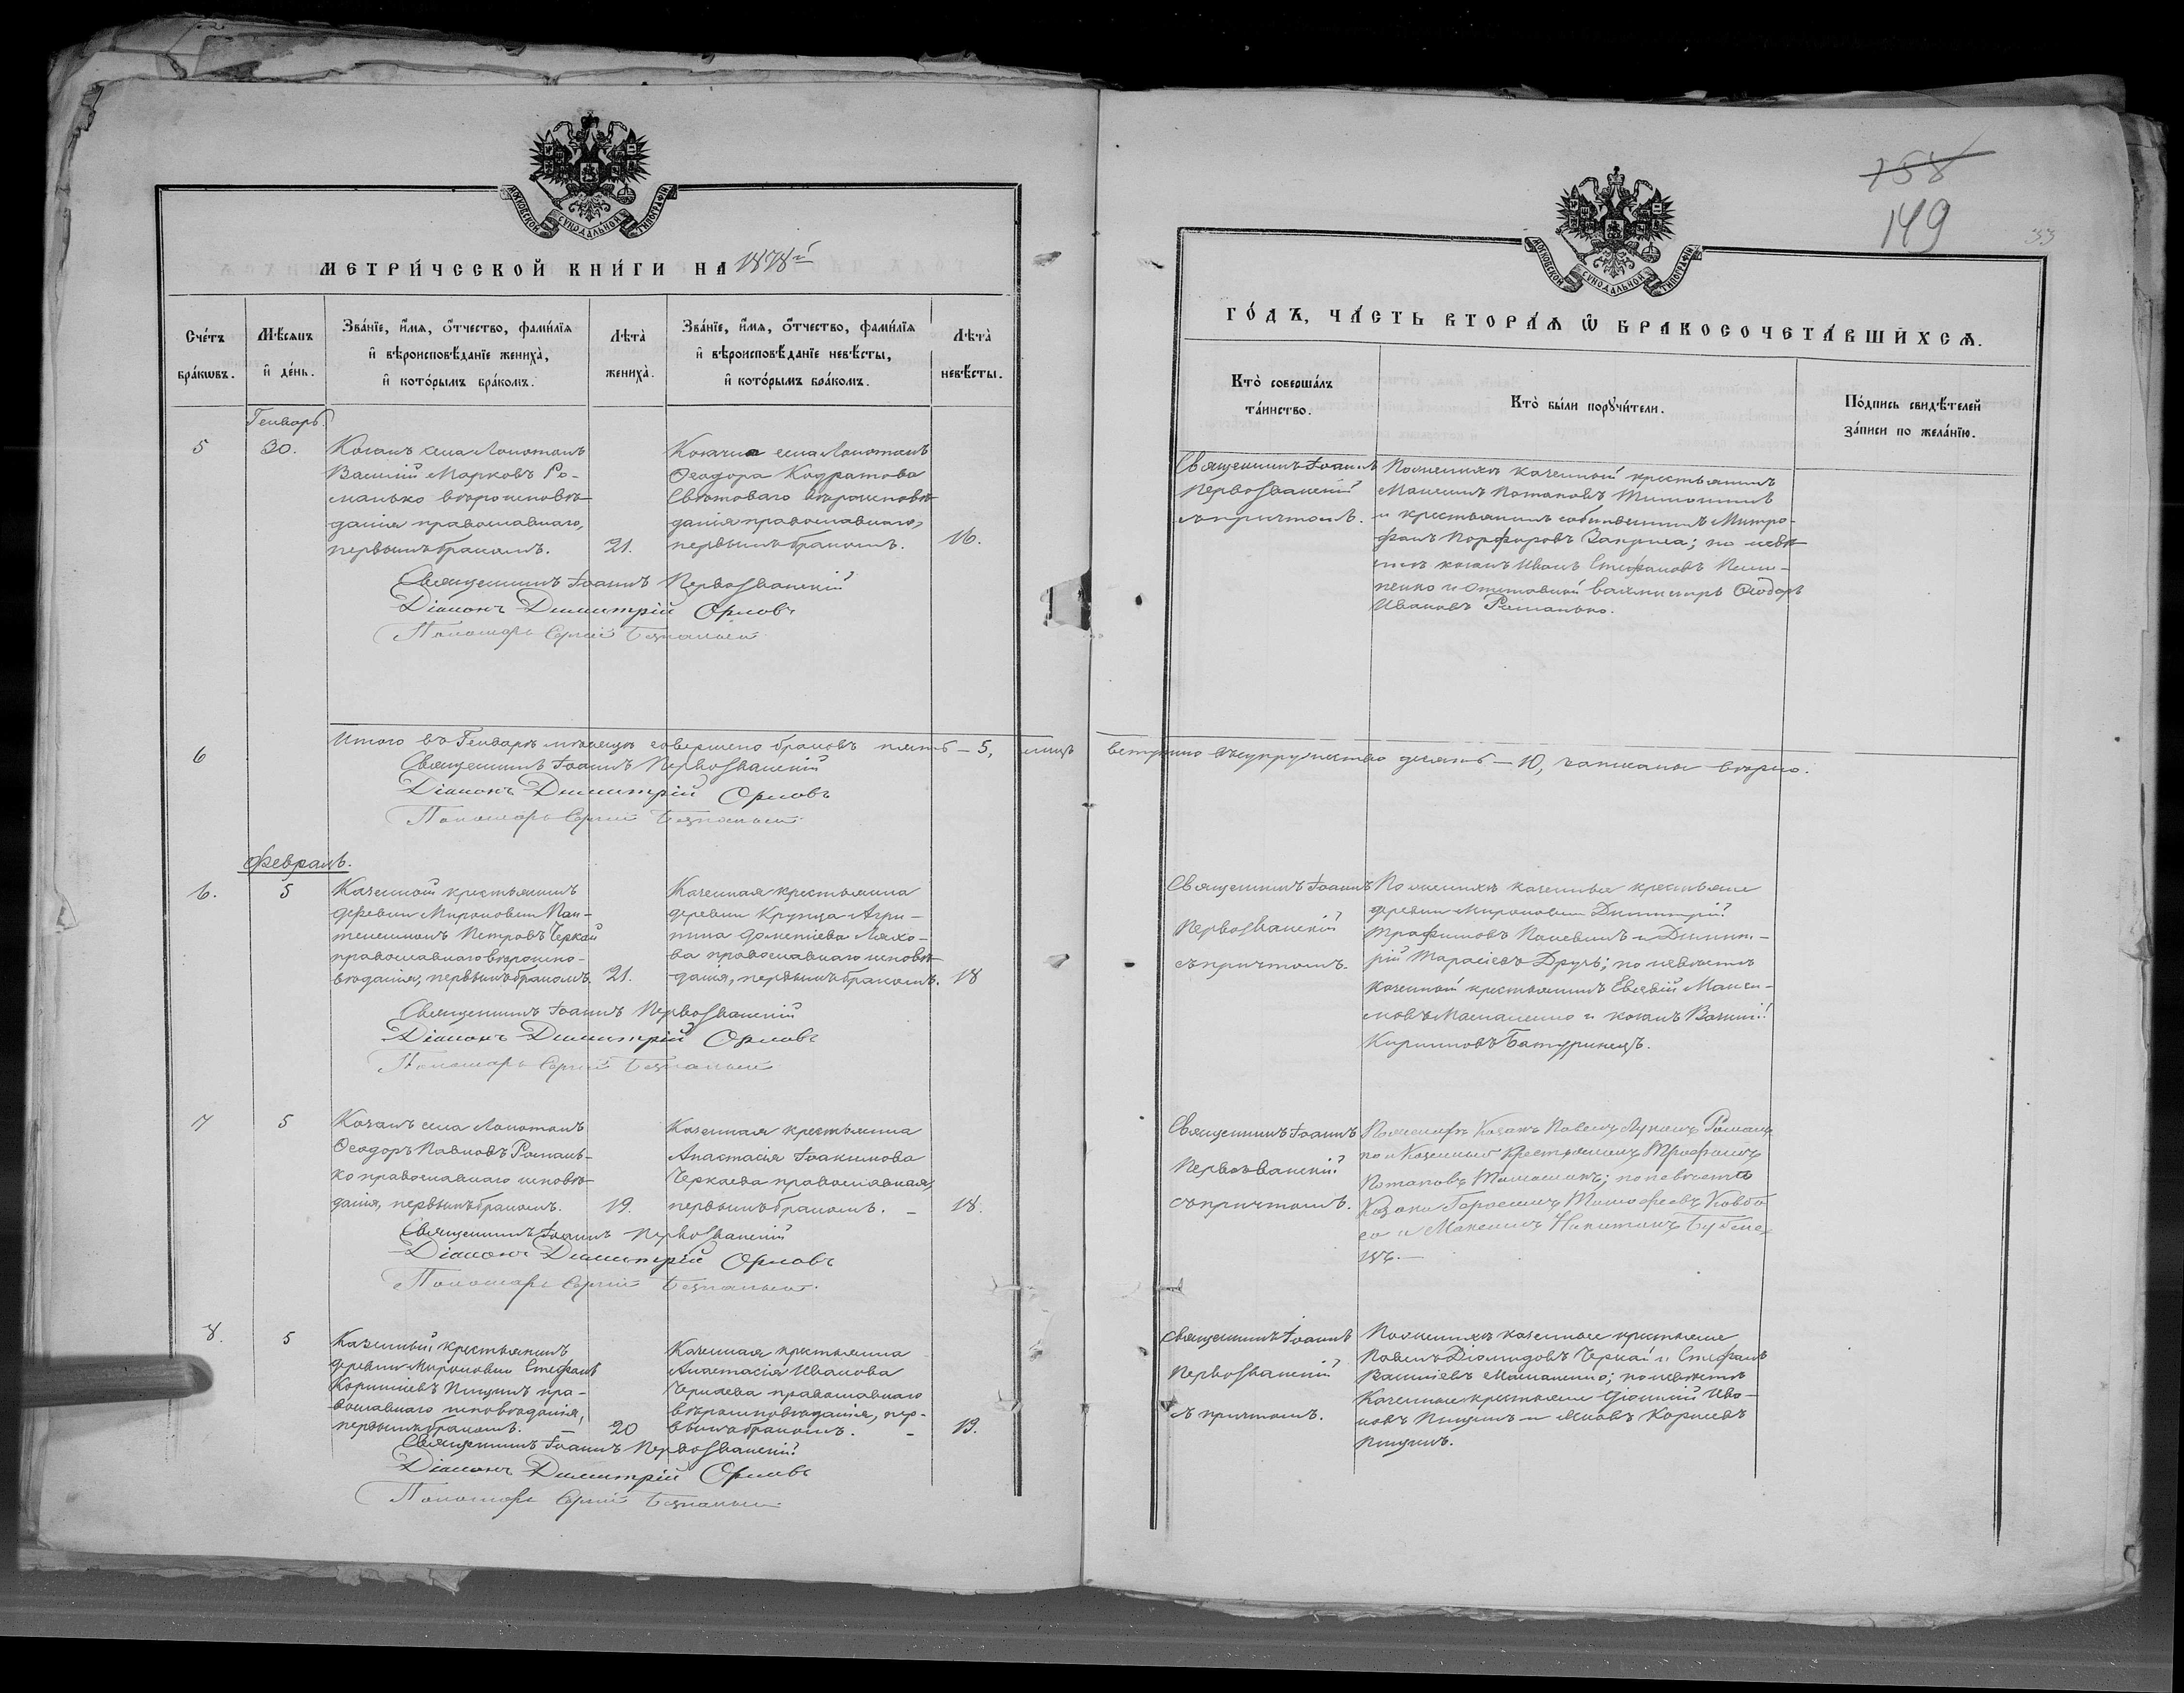 МОСКОВСКОЙ СѴНОДАЛЬНОЙ ТИПОГРАФІИ
МЕТРИ́ЧЕСКОЙ КНИ́ГИ НА 1878й
Сче́тъ бра́кѡвъ.
Мѣ́сяцъ и҆ де́нь.
Зва́нїе, и҆́мѧ, ѻ҆́тчество, фами́лїѧ
и҆ вѣроисповѣ́данїе жениха̀,
и҆ кото́рымъ бра́комъ.
Лѣ́та̀ жениха̀.
Зва́нїе, и҆́мѧ, ѻ҆́тчество, фами́лїѧ
и҆ вѣроисповѣ́данїе невѣ́сты,
и҆ кото́рымъ бра́комъ.
Лѣ́та̀ невѣ́сты.
Генварь
5
30.
Козакъ села Локотокъ
Василій Марковъ Ро-
манько вѣроисповѣ-
данія православнаго,
первымъ бракомъ.
21.
Козачка села Локотокъ
Ѳеодора Кодратова
вѣроисповѣ-
данія православнаго,
первымъ бракомъ.
16.
Священникъ Іоаннъ Первозванскій
Діаконъ Димитрій Орловъ
Пономарь Сергій
6
Итого въ Генварѣ мѣсяцѣ совершено браковъ пять – 5, лицъ
Священникъ Іоаннъ Первозванскій
Діаконъ Димитрій Орловъ
Пономарь Сергій
Февраль.
6.
5
Казенной крестьянинъ
деревни Мироновки Пан-
телеимонъ Петровъ Черкай
православнаго вѣроиспо-
вѣданія, первымъ бракомъ.
21.
Казенная крестьянка
деревни Крупца Агри-
пина Дометіева Ляхо-
ва православнаго исповѣ-
данія, первымъ бракомъ.
18
Священникъ Іоаннъ Первозванскій
Діаконъ Димитрій Орловъ
Пономарь Сергій
7
5
Козакъ села Локотокъ
Ѳеодоръ Павловъ Романь-
ко православнаго исповѣ-
данія, первымъ бракомъ.
19.
Казенная крестьянка
Анастасія Іоакимова
Черкаева православная,
первымъ бракомъ. –
18.
Священникъ Іоаннъ Первозванскій
Діаконъ Димитрій Орловъ
Пономарь Сергій
8.
5
Казенный крестьянинъ
деревни Мироновки Стефанъ
Корниліевъ Пищикъ пра-
вославнаго исповѣданія,
первымъ бракомъ. –
20
Казенная крстьянка
Анастасія Иванова
Черкаева православнаго
вѣроисповѣданія, пер-
вымъ бракомъ. –
19.
Священникъ Іоаннъ Первозванскій
Діаконъ Димитрій Орловъ
Пономарь Сергій
158
149
33
МОСКОВСКОЙ СѴНОДАЛЬНОЙ ТИПОГРАФІИ
ГО́ДЪ, ЧА́СТЬ ВТОРА́Ѧ Ѽ БРАКОСОЧЕТА́ВШИХСѦ.
Кто̀ соверша́лъ та́инство.
Кто̀ бы́ли порꙋчи́тели.
По́дпись свидѣ́телей за́писи по жела́нїю.
Священникъ Іоаннъ
Первозванскій
съ причтомъ.
По женихѣ казенный крестьянинъ
Максимъ Потаповъ
и крестьянинъ собственникъ Митро-
фанъ Порфировъ; по невѣ-
стѣ козакъ Иванъ Стефановъ
и отставной вахмистръ Ѳеодоръ
Ивановъ Романько.
вступило въ супружество десять – 10, показаны вѣрно.
Священникъ Іоаннъ
Первозванскій
съ причтомъ.
По женихѣ казенные крестьяне
деревни Мироновки Димитрій
Трофимовъ и Димит-
рій Тарасіевъ Друзь; по невѣстѣ
казенный крестьянинъ Евсевій Макси-
мовъ и козакъ Василій
Кирилловъ Батуринецъ.
Священникъ Іоаннъ
Первозванскій
съ причтомъ.
По женихѣ Козакъ Павелъ Лукинъ Романь-
ко и Казенный Крестьянинъ Трофимъ
Потаповъ; по невѣстѣ
Козаки Герасимъ Тимофеевъ
и Максимъ Никитинъ
Священникъ Іоаннъ
Первозванскій
съ причтомъ.
По женихѣ казенные крстьяне
Павелъ Діомидовъ Черкай и Стефанъ
Василіевъ; по невѣстѣ
Казенные крестьяне Діонисій Ива-
новъ Пищикъ и Яковъ Корнеевъ
Пищикъ.